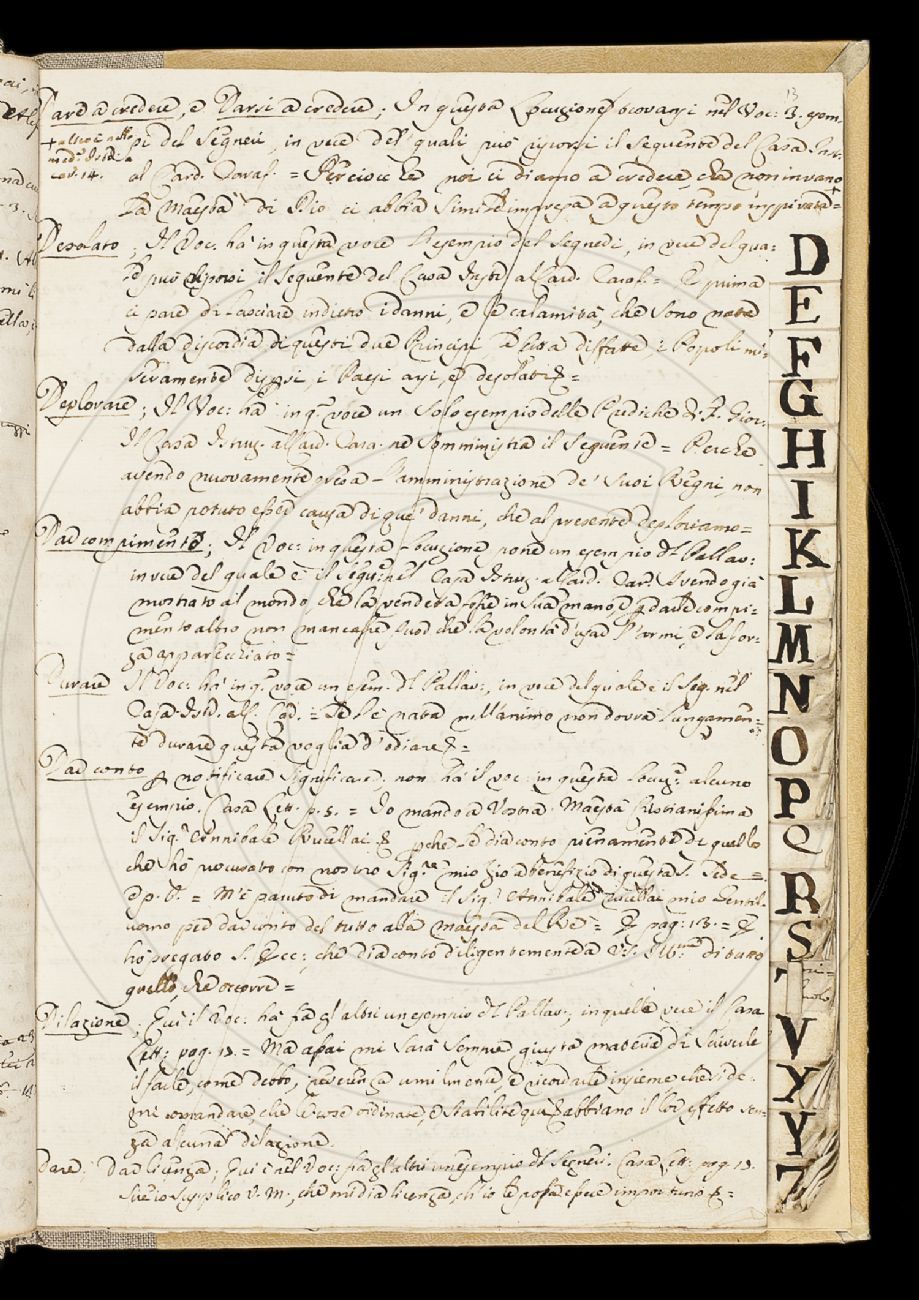 13
Dare a credere, e Darsi a credere; In questa Locuzione trovansi nel Voc: 3. esem-
pi del Segneri, in vece de' quali può riporsi il Seguente del Casa Istr:
al Card. Caraf. = Perciocche noi ci diamo a credere, che non invano
la Maestà di Dio ci abbia
a questo tempo inspirata =
Desolato; Il Voc. ha in questa voce l'esempio del Segneri, in vece del qua-
le può riporsi il Seguente del Casa Instr. al Card. Caraf. = E prima
ci pare di lasciare indietro i danni, e le calamità, che sono nate
dalla discordia di questi due Principi, le Città disfatte, i Popoli mi-
seramente dispersi, i Paesi arsi, e desolati &=
Deplorare; Il Voc: ha in q.a voce un Solo esempio delle Prediche di F. Gior.
Il Casa Istruz. al Card. Cara. ne Somministra il Seguente = Perche
avendo nuovamente presa l'amministrazione de' Suoi Regni, non
abbia potuto esser causa di que' danni, che al presente deploriamo =
Dar compimento; Il Voc: in questa Locuzione pone un esempio del Pallav:
in vece del quale è il Seg: nel Casa Istruz. al Card. Car: Avendo già
mostrato al mondo, che la vendetta
in Sua mano, e p. darle compi-
mento altro non mancasse, fuor che la volontà d'usar l'armi, e la for-
za apparecchiata =
Durare Il Voc: ha in q.a voce un esem. del Pallav:, in vece del quale è il Seg. nel
Casa Istr. al Card. = Se le è nata nell'animo non dovrà lungamen-
te durare questa voglia d'odiare &=
Dar conto p notificare Significare, non ha il Voc: in questa locuz: alcuno
esempio. Casa Lett. p. 5. = Io mando a Vostra Maestà Cristianissima
il Sig.r Annibale Rucellai &
perche le dia conto pienamente di quello
che ho procurato con nostro Sig.re mio Zio a benefizio di questa S. Sede =
e p. 6. = M'è paruto di mandare il Sig.r Annibale Rucellai mio Gentil-
uomo per dar conto del tutto alla Maestà del Re = E pag: 13. = E
ho pregato S. Ecc: che dia conto diligentemente a VS. Ill.ma di tutto
quello che occorre =
Dilazione; Qui il Voc: ha fra gl'altri un esempio del Pallav:, in quella vece il Casa
Lett: pag. 13. = Ma assai mi Sarà Sempre giusta materia di Scriverle
il farle, come debbo, reverenza umilmente, e ricordarle insieme che si de-
gni comandare, che le cose ordinate, e stabilite qui abbiano il lor effetto sen-
za alcuna dilazione.
Dare; Dar licenza; Qui è nel Voc: fra gl'altri un esempio del Segneri. Casa Lett: pag. 13.
supplico V. M., che mi dia licenza, ch'io le possa essere importuno &=
D
E
F
G
H
I
K
L
M
N
O
P
Q
R
S
T
V
X
Y
Z